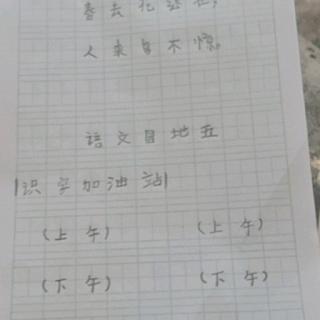 春去花还在，
人来鸟不惊。
语文目地五
识字加油站
（上 午） （上 午）
（下 午） （下 午）